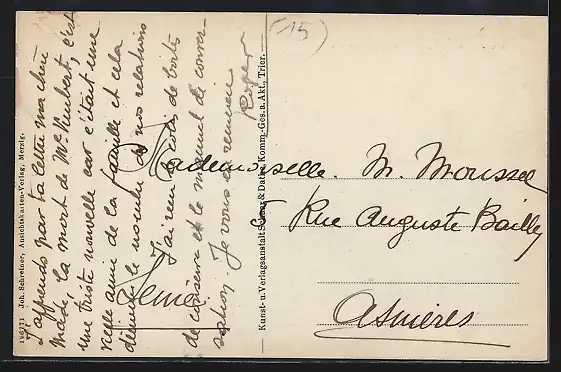 J'apprends par ta lettre ma chère
Made, la mort de Mr Humbert, c'est
une triste nouvelle car c'était une
vieille amie de la famille et cela
diminue le nombre de nos relations
J'ai reçu les de boîte
de cuisine et le manuel de conver-
sation. Je vous en remercie
Roger
(15)
Mademoiselle M. Moussel
5 Rue Auguste Bailly
Asnières
196771 Joh. Schreiner, Ansichtskarten-Verlag, Merzig.
Kunst- u. Verlagsanstalt Schaar & Dathe, Komm.-Ges. a. Akt., Trier.